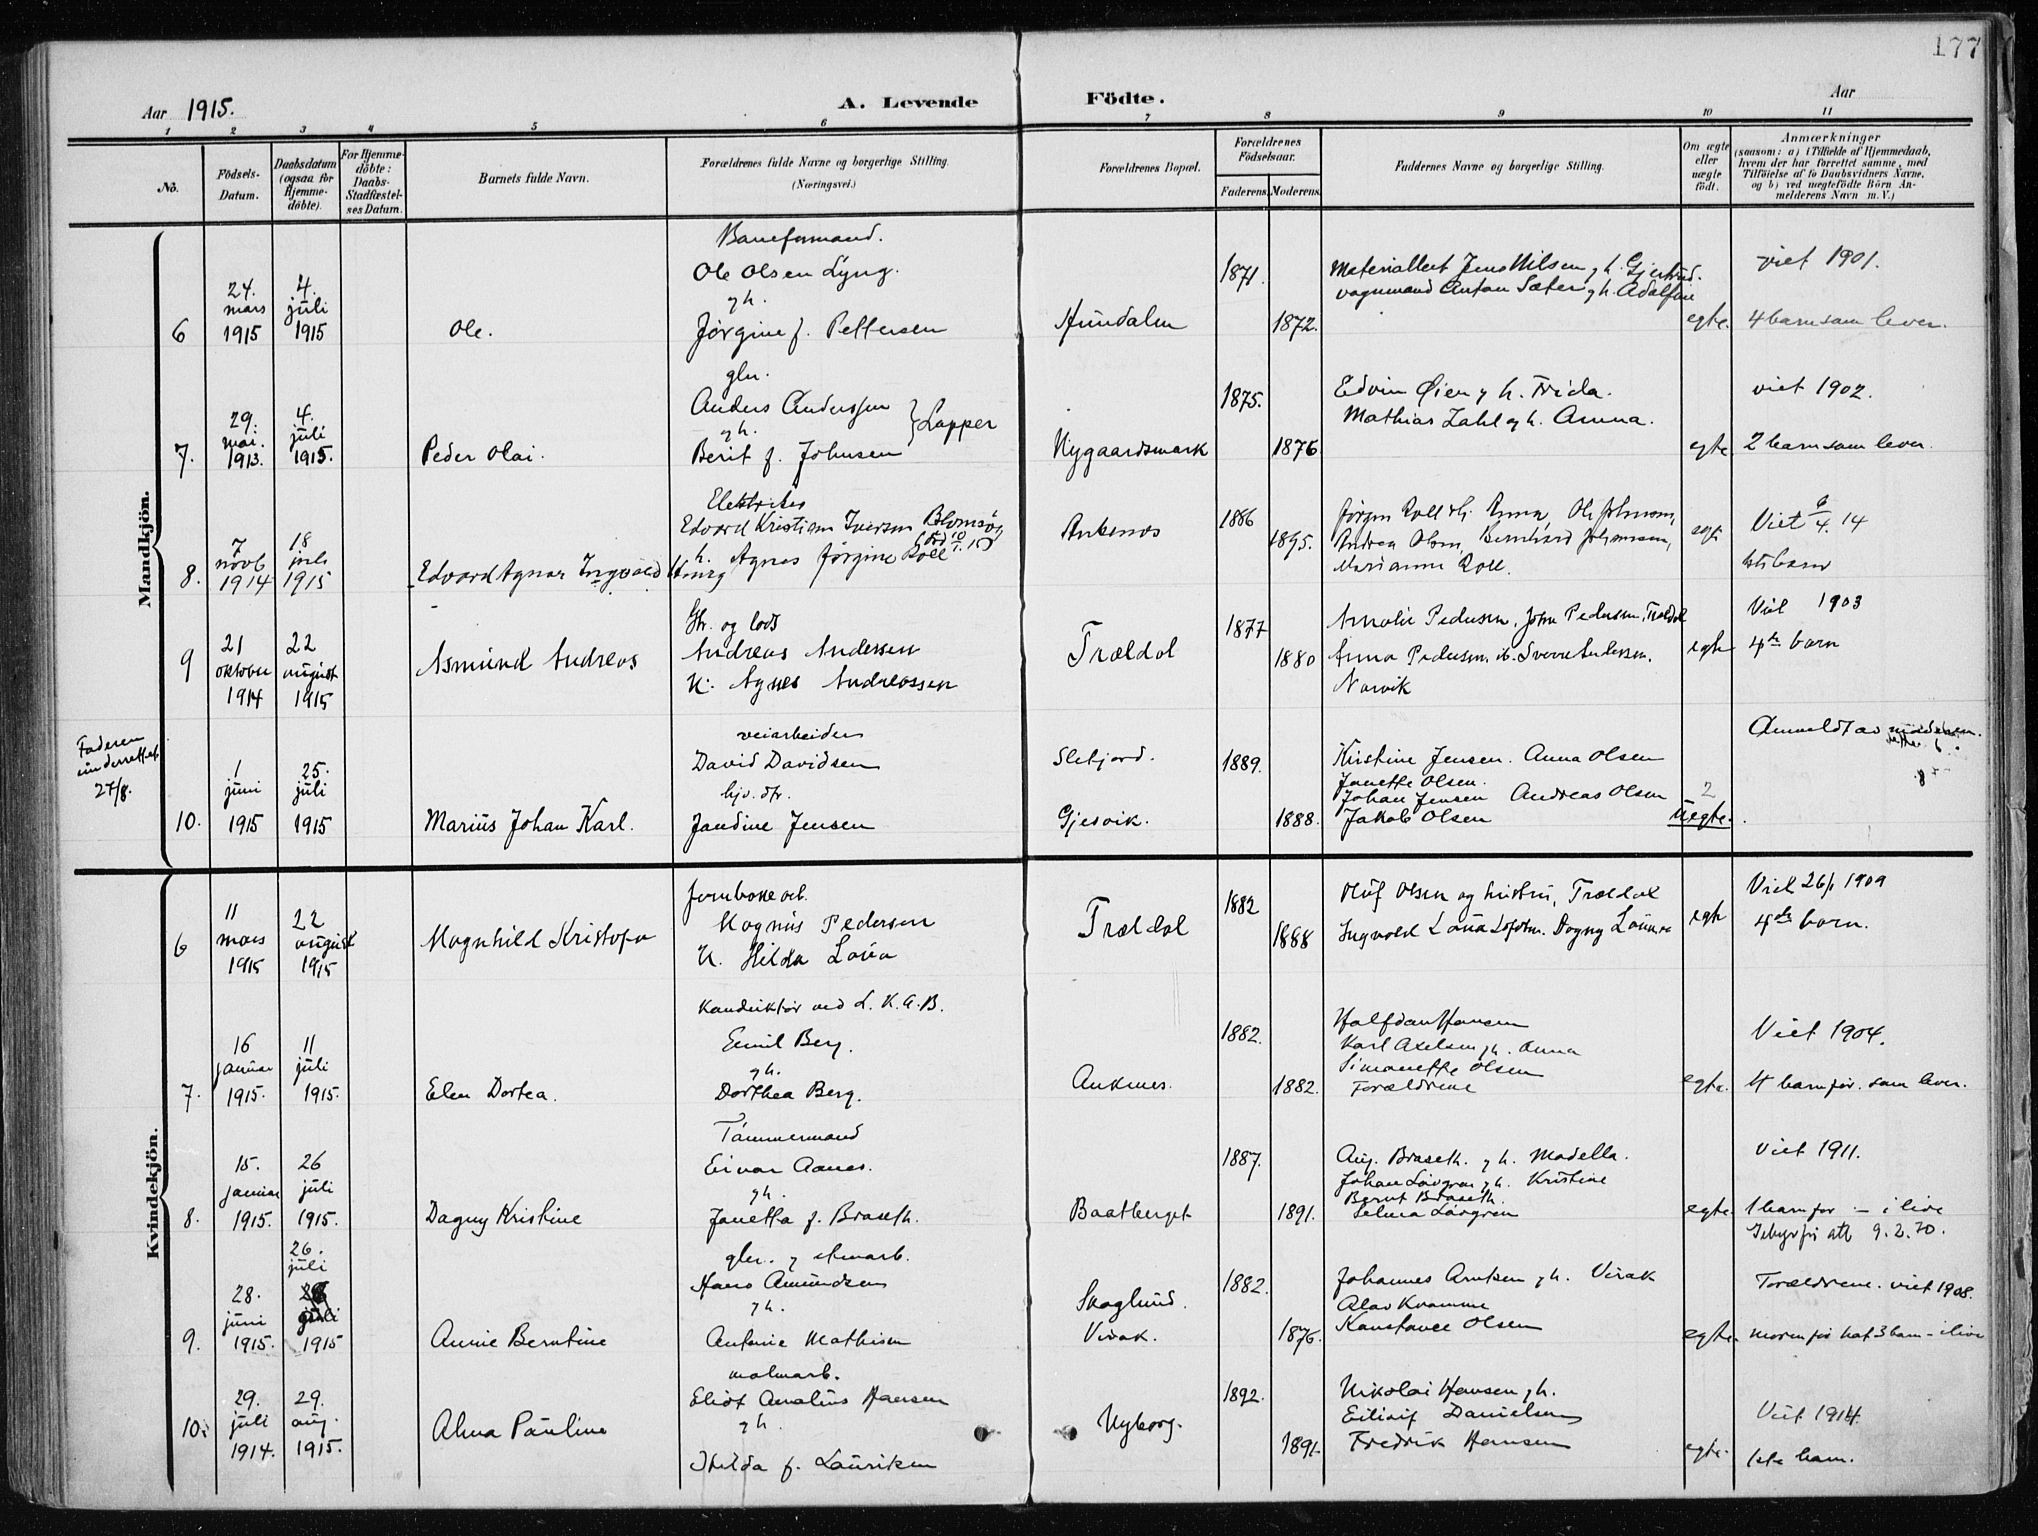 177
Aar 1915.
A. Levende Födte.
Aar
1 2 3 4 5 6 7 8 9 10 11
No.
Födsels-Datum.
Daabsdatum (ogsaa for Hjemme-döbte).
For Hjemme-döbte: Daabs-Stadfæstel-ses Datum.
Barnets fulde Navn.
Forældrenes fulde Navne og borgerlige Stilling. (Næringsvei.)
Forældrenes Bopæl.
Forældrenes Födselsaar.
Faderens. Moderens.
Faddernes Navne og borgerlige Stilling.
Om ægte eller uægte födt.
Anmærkninger
(saasom: a) i Tilfælde af Hjemmedaab, hvem der har forrettet samme, med Tilföielse af to Daabsvidners Navne, og b) ved uegtefödte Börn An-melderens Navn m. V.)
Mandkjön.
6
24. mars 1915
4. juli 1915
Ole.
Baneformand.
Ole Olsen Lyng.
g h.
Jørgine f. Pettersen
Hundalen
1871.
1872.
Jens Nilsen g h. Gjertrud.
vognmand Anton Sæter g h. Adolfine
egte.
viet 1901.
4 barn som lever.
7.
29. mai. 1913.
4. juli 1915.
Peder Olai.
gbr.
Anders Anderssen
g h.
Berit f. Johnsen
} Lapper
Nygaardsmark
1875.
1876
Edvin Øien g h. Frida.
Mathias Zahl g h. Anna.
egte
viet 1902.
2 barn som lever.
8.
7 novb 1914
18 juli 1915
Edvard Agnar Ingvald
Elektriker
Edvard Kristian Iversen
h. Agnes Jørgine Roll
Ankenes
1886
1895.
Jørgen Roll Anna
Andrea Olsen, Bernhard Johansen,
Marianne Roll.
egte
Viet 9/4. 14
1ste barn
9
21 oktober 1914
22 august 1915
Asmund Andreas
Gbr. og lods
Andreas Andersen
H: Agnes Andreassen
Trældal
1877
1880
Amalie Pedersen, John Pedersen, Trældal
Anna Pedersen. Sverre Andersen.
Narvik
egte
Viet 1903
4de barn
Faderen underrettet 27/8.
10.
1 juni 1915
25. juli 1915
Marius Johan Karl.
veiarbeider
David Davidsen
hjv. dtr.
Jandine Jensen
Sletjord.
Gjesvik.
1889.
1888.
Kristine Jensen. Anna Olsen
Janette Olsen.
Johan Jensen Andreas Olsen
Jakob Olsen
2
Uegte.
Anmeldt av
Kvindekjön.
6
11 mars 1915
22 august 1915
Magnhild Kristofa
Magnus Pedersen
H. Hilda
Trældal
1882
1888
Oluf Olsen og hustru, Trældal
Ingvald Dagny
egte
Viet 26/1 1909
4de barn.
7.
16 januar 1915.
11 juli 1915.
Elen Dortea.
Konduktør ved L. K. A. B.
Emil Berg.
g h.
Dorthea Berg.
Ankenes.
1882.
1882.
Halfdan Hansen
Karl Axelsen g h. Anna
Simonette Olsen
Forældrene
egte.
Viet 1904.
4 barn før. som lever.
8.
15. januar 1915.
26 juli 1915.
Dagny Kristine
Tømmermand
Eivar Aanes.
g h.
Janetta f. Braseth.
Baatberget
1887.
1891.
Aug. Braseth. g h. Modella.
Johan Lövgren g h. Kristine
Bernt Braseth.
Selma Lövgren
egte
Viet 1911.
1 barn før - i live
att 9.2.70.
9.
28. juni 1915.
26. juli
1915
Annie Berntine
gbr. g
Hans Amundsen
g h.
Antonie Mathisen
Skoglund.
Virak.
1882.
1876.
Johannes Arntsen g h. Virak
Olav Kvamme
Konstance Olsen
egte.
Forældrene. viet 1908.
moren før hat 3 barn - i live
10.
29. juli 1914.
29. aug. 1915.
Alma Pauline
malmarb.
Eliot Hansen
g h
Hilda f. Lauriksen
Nyborg.
1892.
1891.
Nikolai Hansen g h.
Danielsen
Fredrik Hansen
egte.
Viet 1914.
1ste barn.